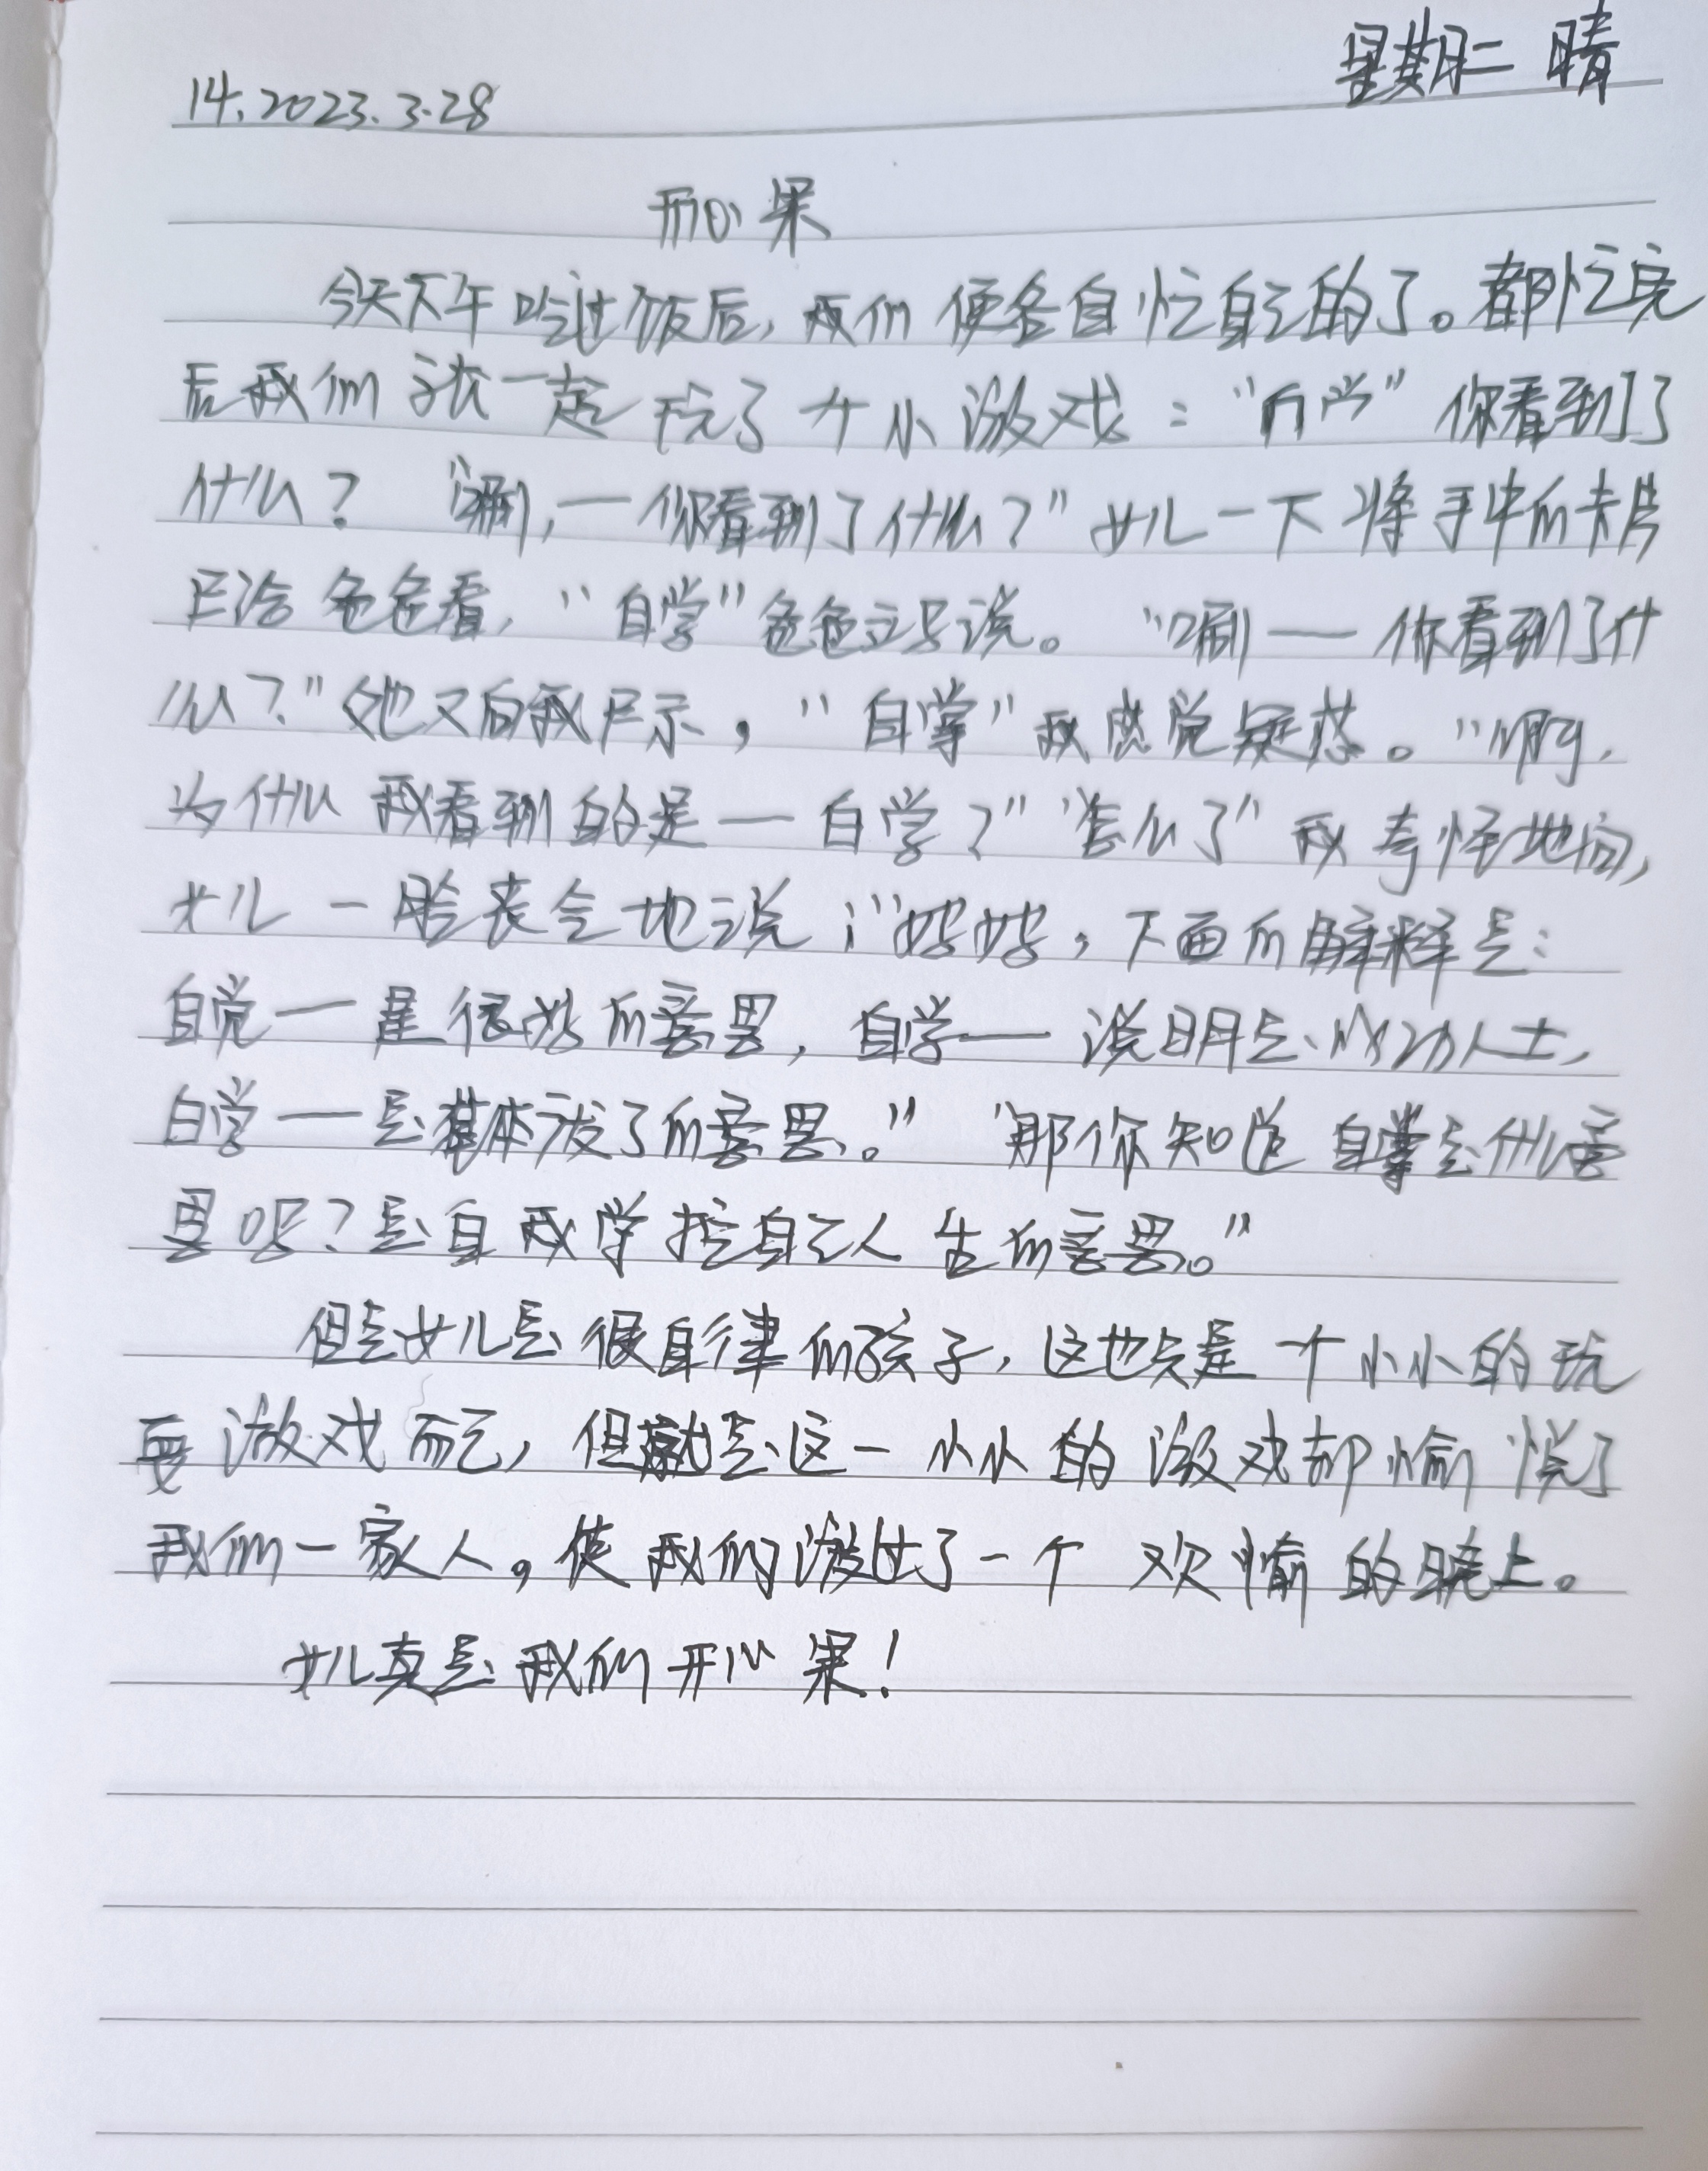 14. 2023. 3. 28 星期二 晴
开心果
今天下午吃过饭后，我们便各自忙自己的了。都忙完
后我们就一起玩了个小游戏："" 你看到了
什么？"唰，一你看到了什么？"女儿一下将手中的卡片
展给爸爸看，"自学"爸爸立马说。"唰——你看到了什
么？"她又向我展示，"自掌"我感觉疑惑。"啊，
为什么我看到的是——白学？""怎么了"我奇怪地问，
女儿一脸丧气地说："妈妈，下面的解释是：
自觉——是很好的意思，自学——说明是成功人士，
白学——是基本废了的意思。""那你知道自掌是什么意
思呢？是自我掌控自己人生的意思。"
但是女儿是很自律的孩子，这也只是一个小小的玩
耍游戏而已，但就是这一小小的游戏却愉悦了
我们一家人。使我们渡过了一个欢愉的晚上。
女儿真是我们开心果！